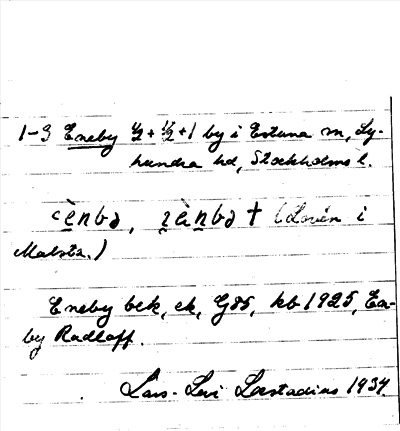 1-3 Eneby ½ + ½ + 1 by i Estuna sn, Ly-
hundra hd, Stockholms l.
(Lovén i
Malsta.)
Eneby bek, ek, G85, kb 1925, En-
by Radloff.
Lars-Levi Læstadius 1934.